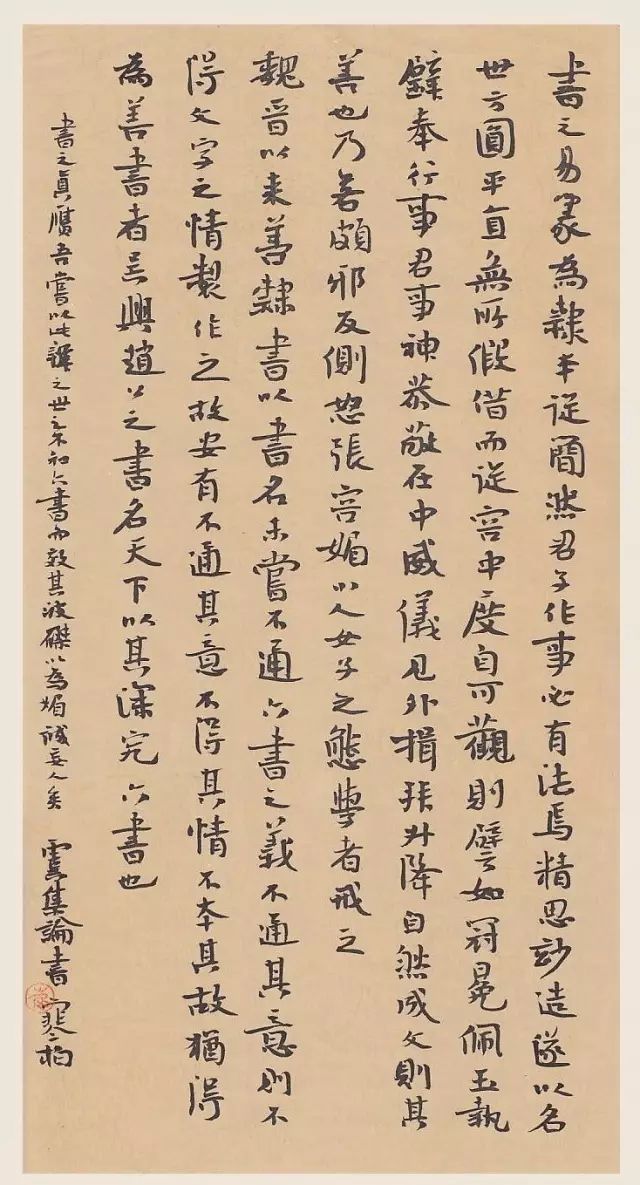 書之易篆為隸本從簡然君子作事必有法焉精思妙造遂以名
世方圓平直無所假借而從容中度自可觀則譬如冠冕佩玉執
璧奉行事君事神恭敬在中威儀見外揖升降自然成文則其
善也乃若頗邪反側怒張容媚小人女子之態學者戒之
魏晉以來善隸書以書名未嘗不通六書之義不通其意則不
得文字之情製作之故安有不通其意不得其情不本其故猶得
為善書者吳興趙公之書名天下以其深究六書也
書之真贗吾嘗以此之世之不知六書而效其波磔以為媚誠妄人矣 虞集論書